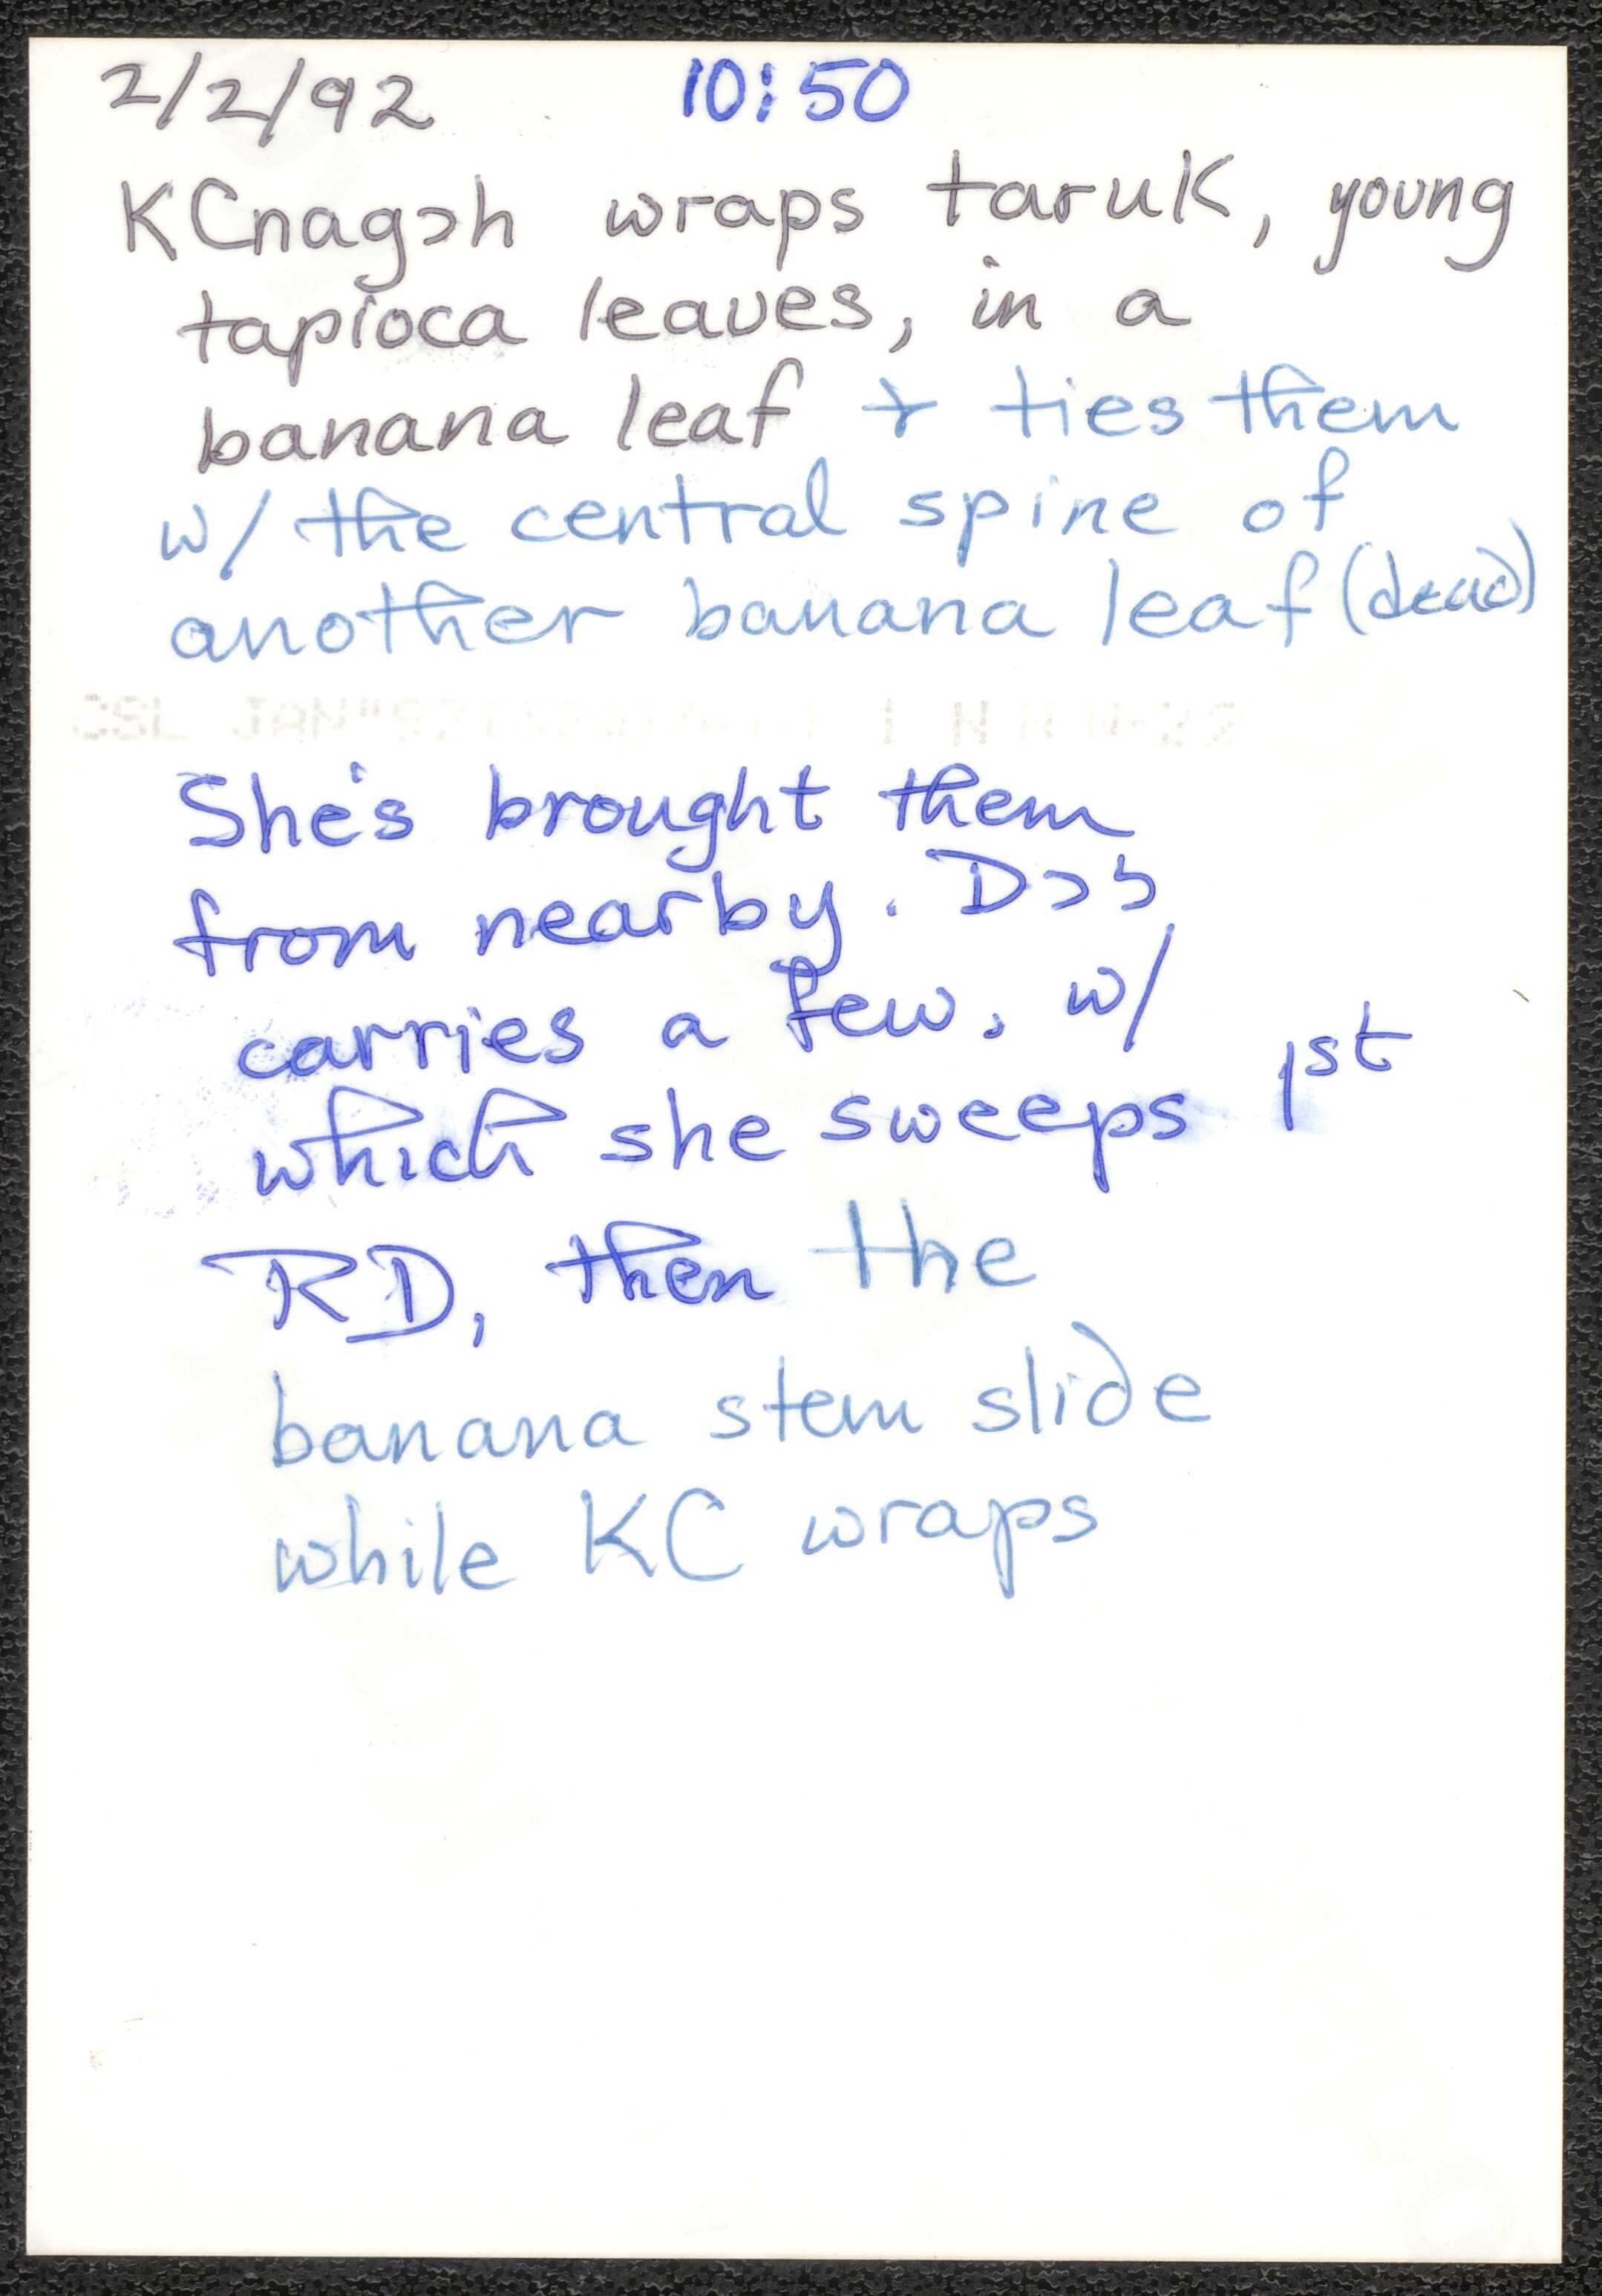 2/2/92 10:50
KCnagɔh wraps taruk, young
tapioca leaves, in a
banana leaf + ties them
w/ the central spine of
another banana leaf (dead)
She's brought them
from nearby. Dɔ5
carries a few, w/
which she sweeps 1st
RD, then the
banana stem slide
while KC wraps